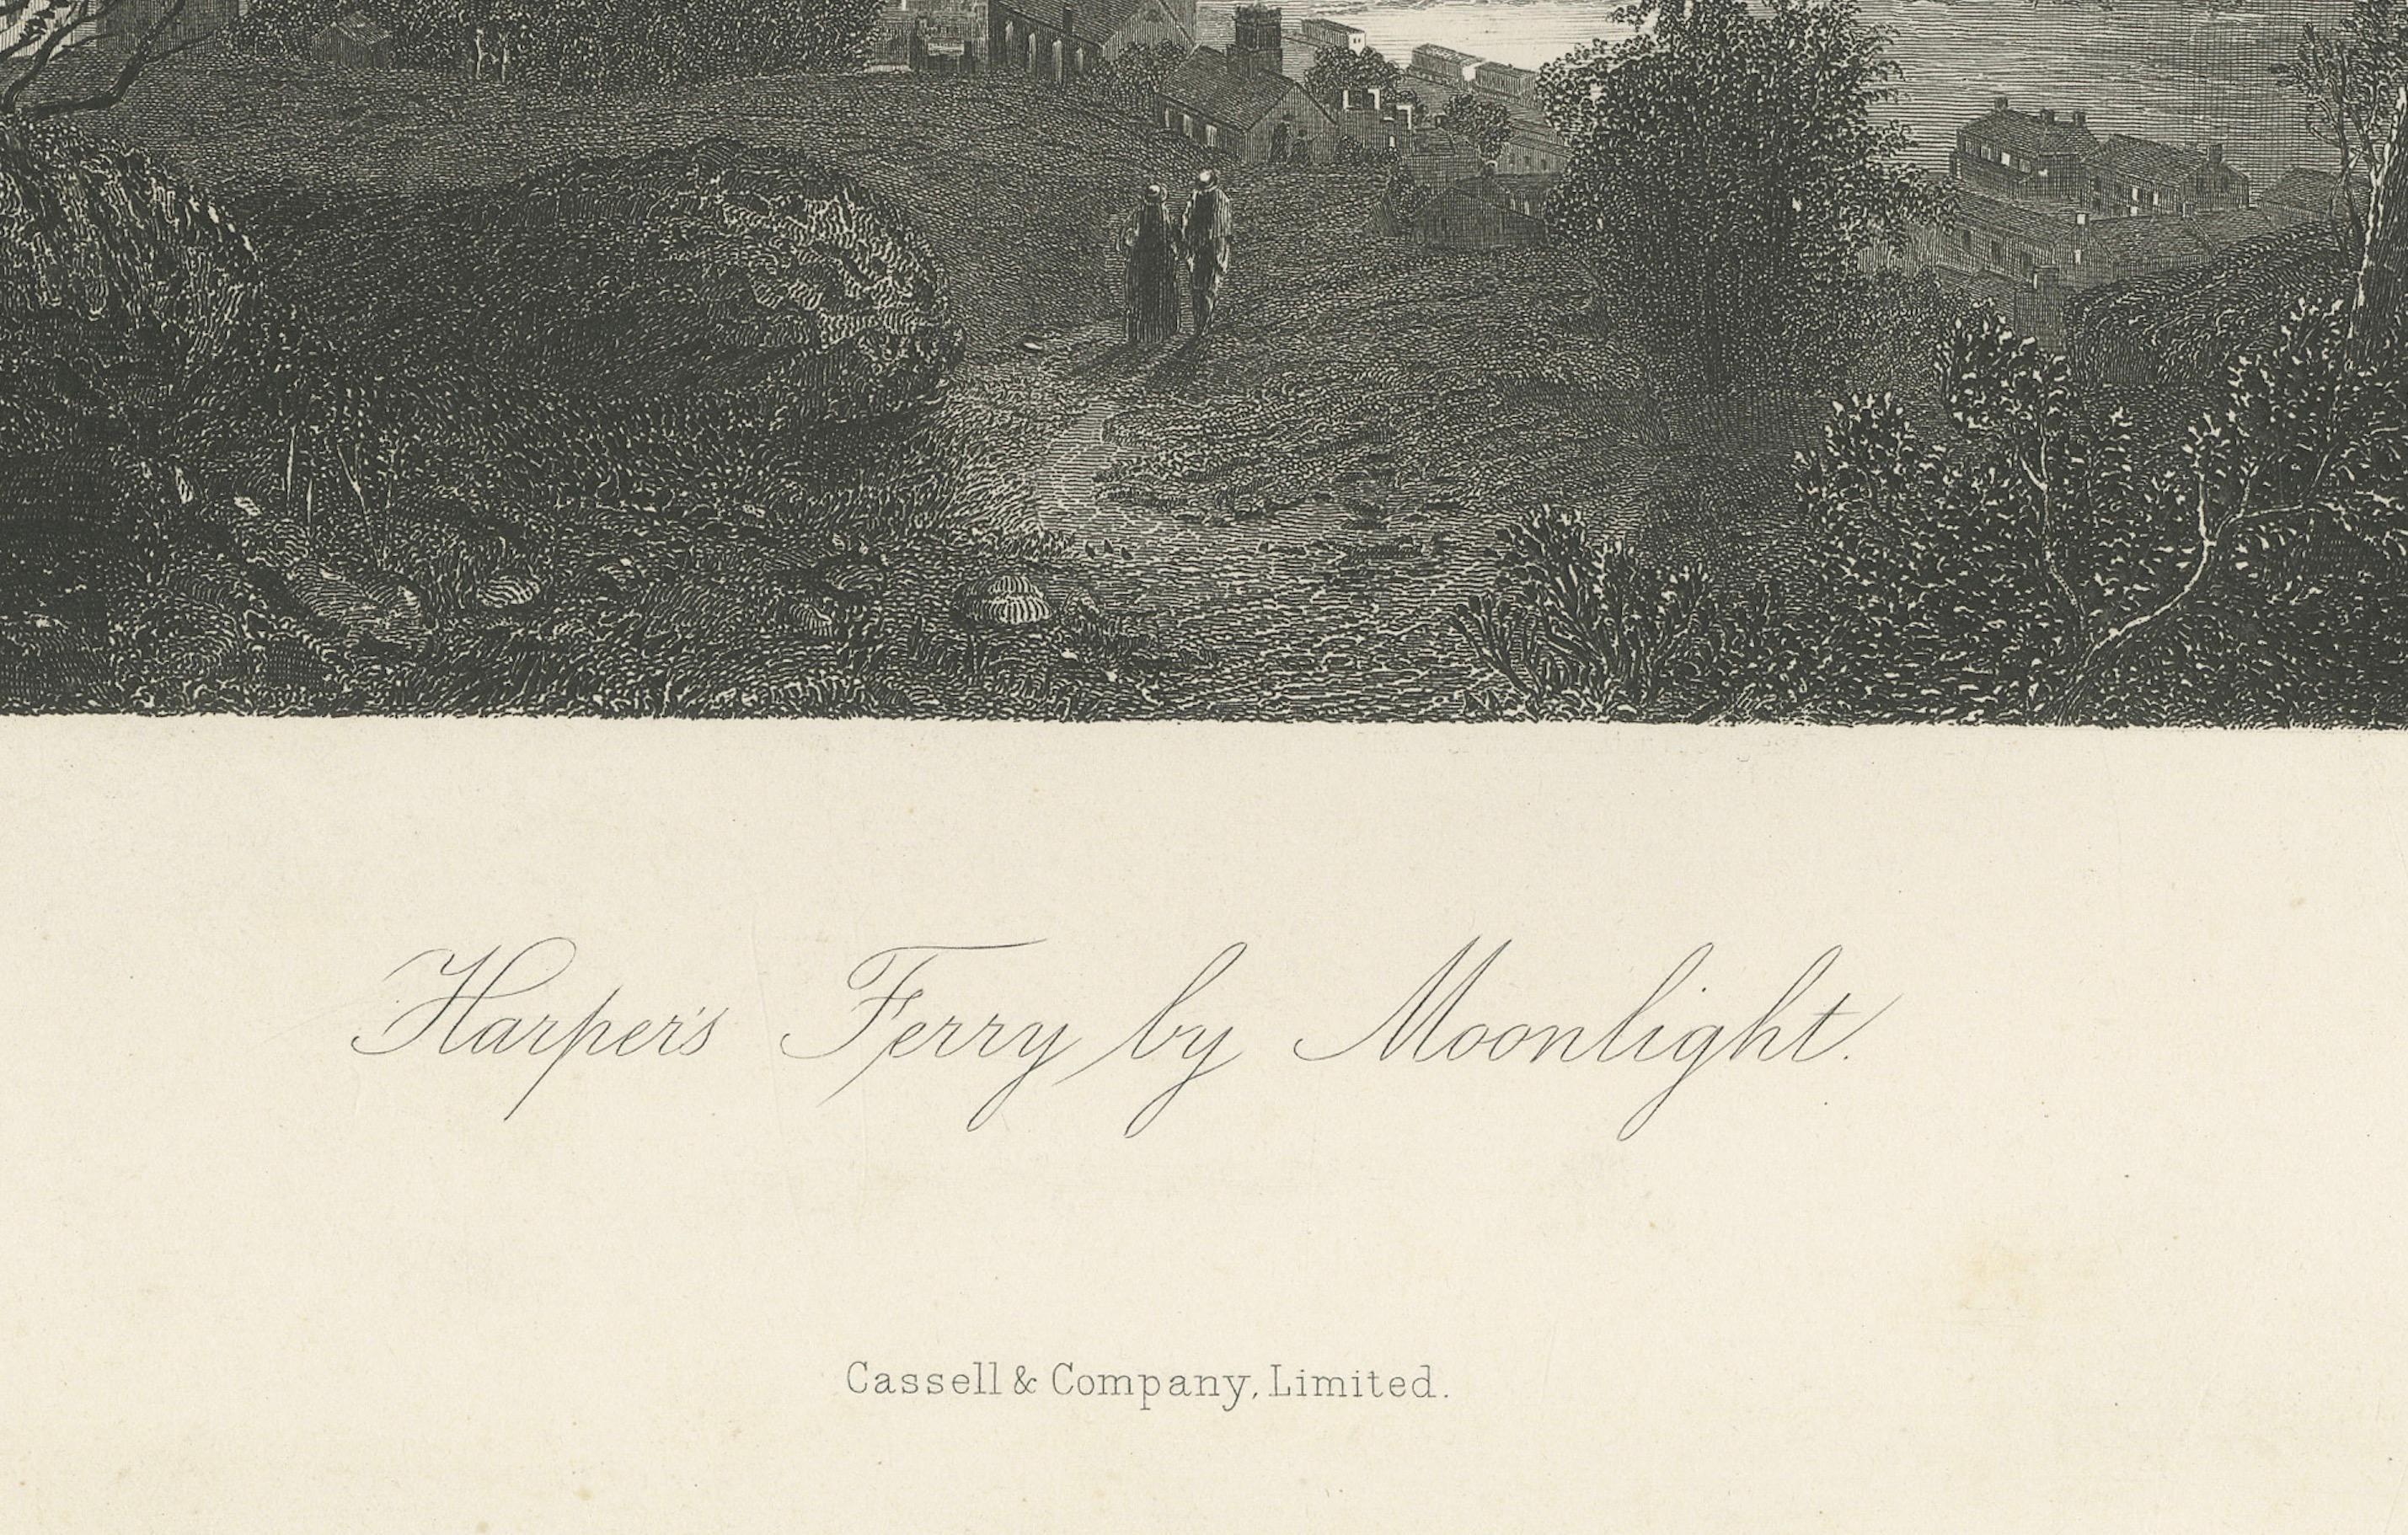 Harper's Ferry by Moonlight.
Cassell & Company, Limited.